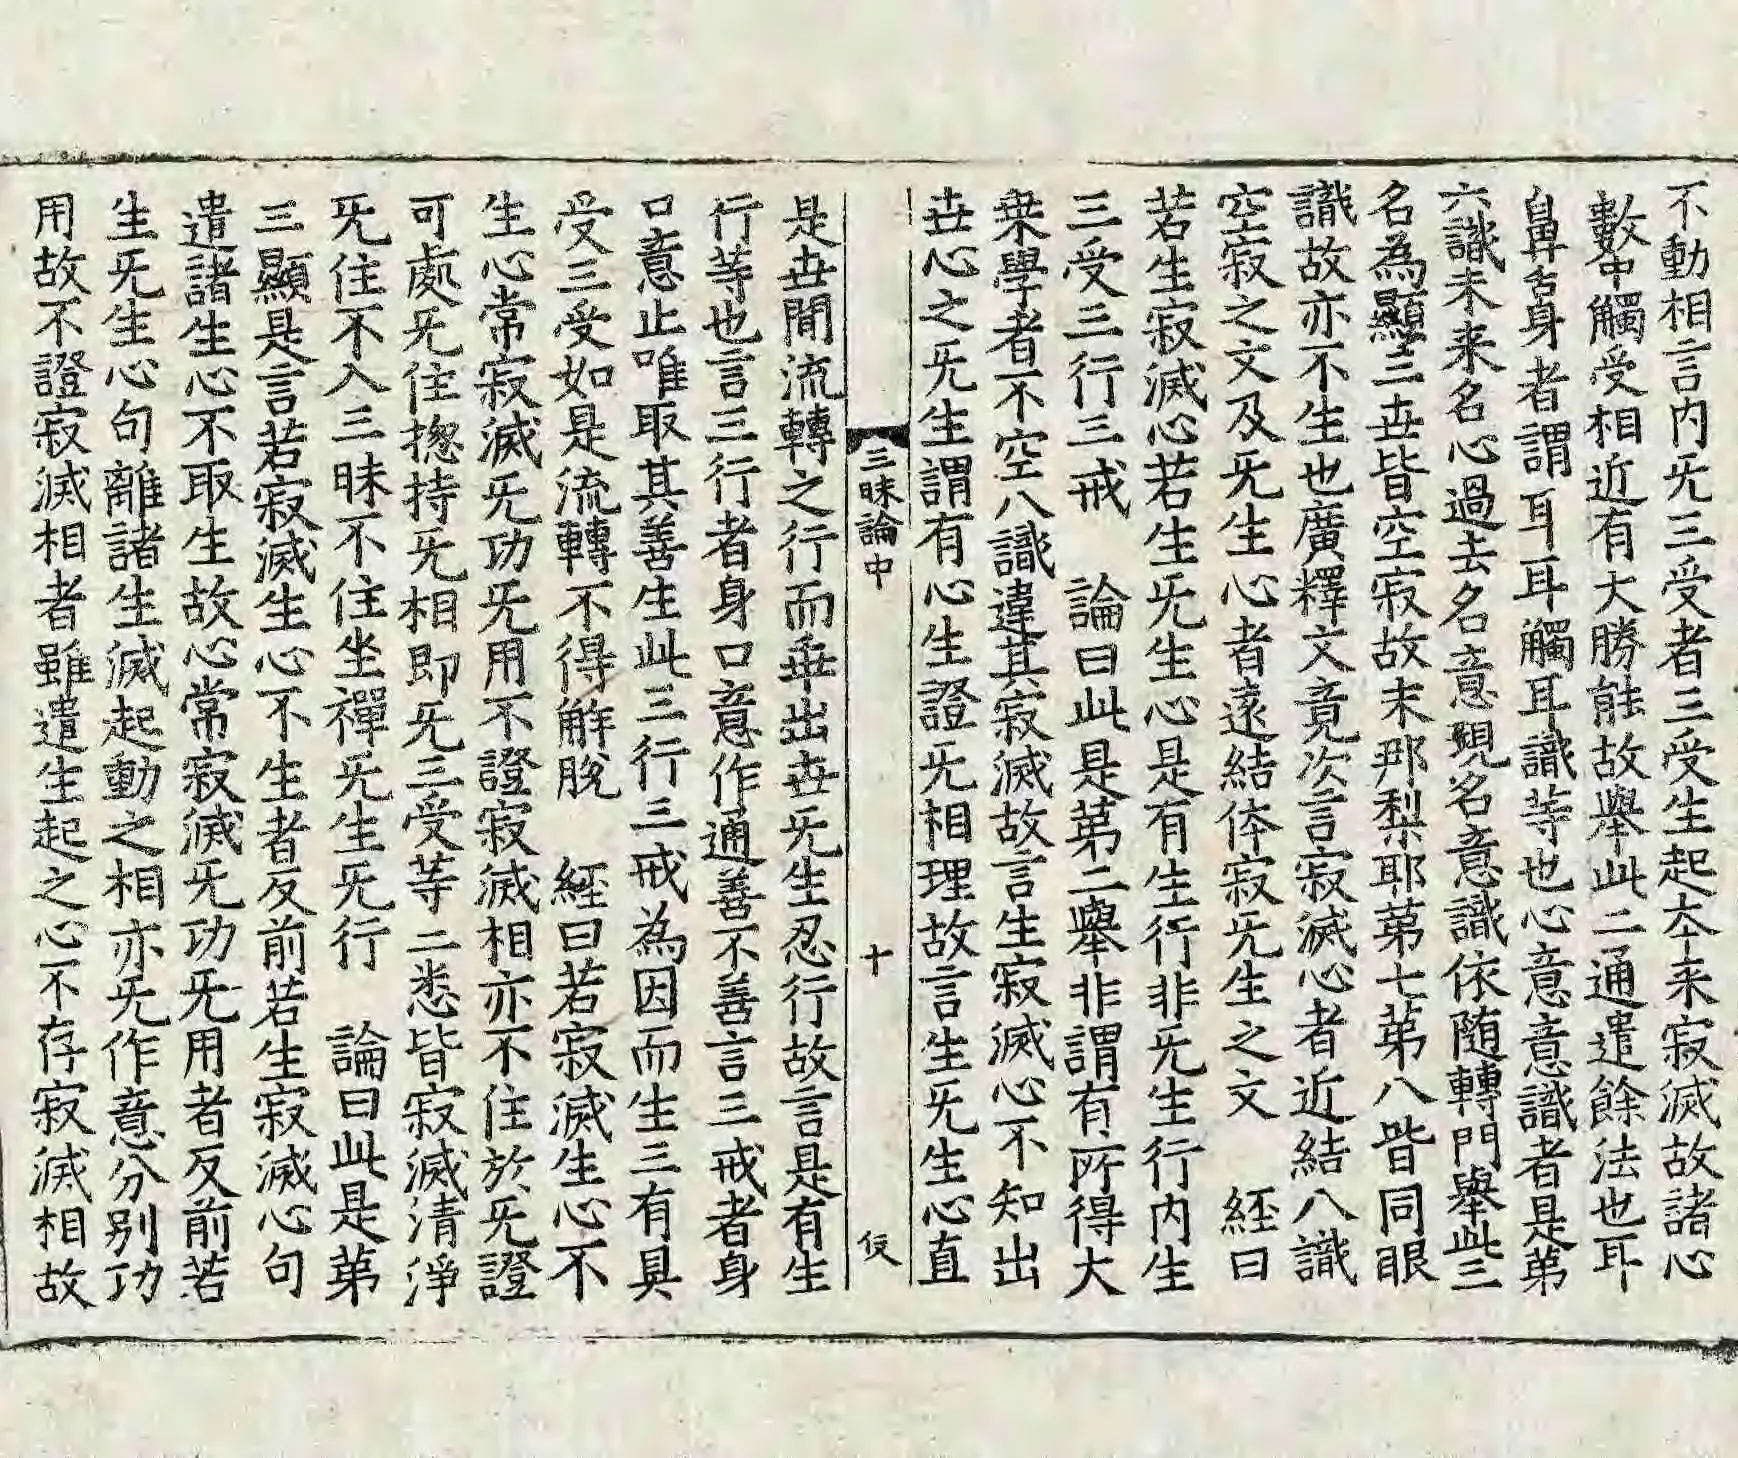 不動相言内无三受者三受生起夲来寂滅故諸心
數中觸受相近有大勝能故舉此二通遣餘法也耳
鼻舌身者謂耳耳觸耳識等也心意意識者是苐
六識未来名心過去名意現名意識依随轉門舉此三
名為顯三世皆空寂故末那梨耶苐七苐八皆同眼
識故亦不生也廣釋文竟次言寂滅心者近結八識
空寂之文及无生心者遠結体寂无生之文　經曰
若生寂滅心若生无生心是有生行非无生行内生
三受三行三戒　論曰此是苐二舉非謂有所得大
乗學者不空八識違其寂滅故言生寂滅心不知出
世心之无生謂有心生證无相理故言生无生心直
三昧論中　十　伎
是世間流轉之行而乖出世无生忍行故言是有生
行等也言三行者身口意作通善不善言三戒者身
口意止唯取其善生此三行三戒為因而生三有具
受三受如是流轉不得解脫　經曰若寂滅生心不
生心常寂滅无功无用不證寂滅相亦不住於无證
可處无住揔持无相即无三受等三悉皆寂滅清淨
无住不入三昧不住坐禪无生无行　論曰此是苐
三顯是言若寂滅生心不生者反前若生寂滅心句
遣諸生心不取生故心常寂滅无功无用者反前若
生无生心句離諸生滅起動之相亦无作意分别功
用故不證寂滅相者雖遣生起之心不存寂滅相故